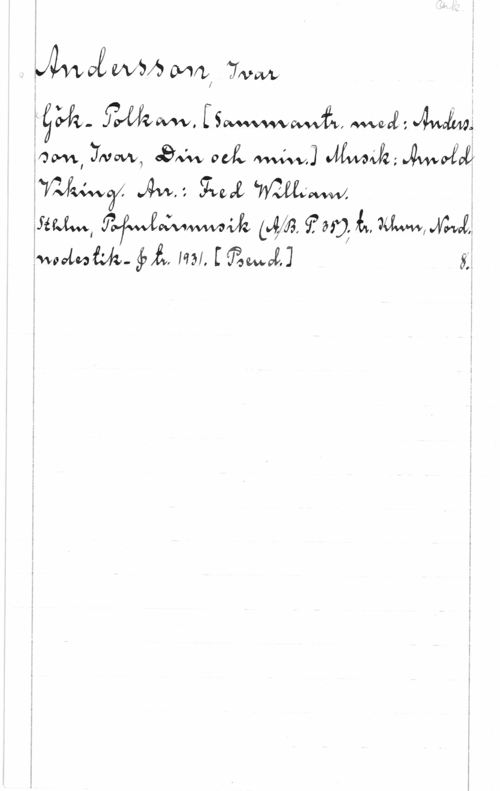 Ork.
Andersson, Ivar
Gök-Polkan. [Sammantr. med: Anders-
son, Ivar, Din och min.] Musik: Arnold
Viking. Arr.: Fred William.
Sthlm, Populärmusik (A/B. P. 35), tr. Khvn, Nord.
nodestik- & tr. 1931. [Pseud.] 8.